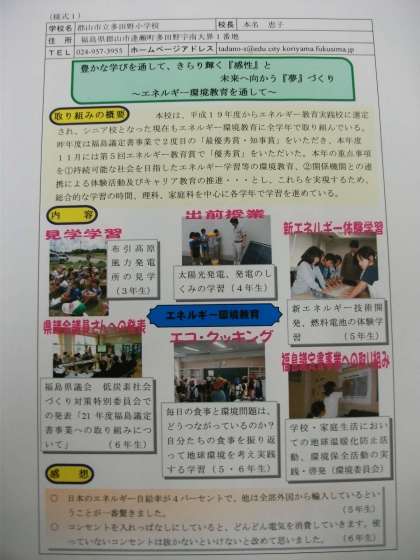 (様式1)
学校名 郡山市立多田野小学校 校長 本名 恵子
住所 福島県郡山市逢瀬町多田野字南大界1番地
TEL 024-957-3953 ホームページアドレス tadano-e@edu.city.koriyama.fukusima.jp
豊かな学びを通して、きらり輝く『感性』と
未来へ向かう『夢』づくり
～エネルギー環境教育を通して～
取り組みの概要 本校は、平成19年度からエネルギー教育実践校に選定
され、シニア校となった現在もエネルギー環境教育に全学年で取り組んでいる。
昨年度は福島議定書事業で2度目の「最優秀賞・知事賞」をいただき、本年度
11月には第5回エネルギー教育賞で「優秀賞」をいただいた。本年の重点事項
を①持続可能な社会を目指したエネルギー学習等の環境教育、②関係機関との連
携による体験活動及びキャリア教育の推進・・・とし、これらを実現するため、
総合的な学習の時間、理科、家庭科を中心に各学年で学習を進めている。
内容
見学学習
布引高原
風力発電
所の見学
(3年生)
出前授業
太陽光発電、発電のし
くみの学習(4年生)
新エネルギー体験学習
新エネルギー技術開
発、燃料電池の体験学
習 (5年生)
エネルギー環境教育
県議会議員さんへの発表
福島県議会 低炭素社会
づくり対策特別委員会で
の発表「21年度福島議定
書事業への取り組みにつ
いて」 (6年生)
エコ・クッキング
毎日の食事と環境問題は、
どうつながっているのか?
自分たちの食事を振り返
って地球環境を考え実践
する学習(5・6年生)
福島議定書事業への取り組み
学校・家庭生活におい
ての地球温暖化防止活
動、環境保全活動の実
践・啓発(環境委員会)
感想
○ 日本のエネルギー自給率が4パーセントで、他は全部外国から輸入しているとい
うことが一番驚きました。 (5年生)
○ コンセントを入れっぱなしにしていると、どんどん電気を消費していきます。使
っていないコンセントは抜かないといけないと改めて思いました。 (6年生)